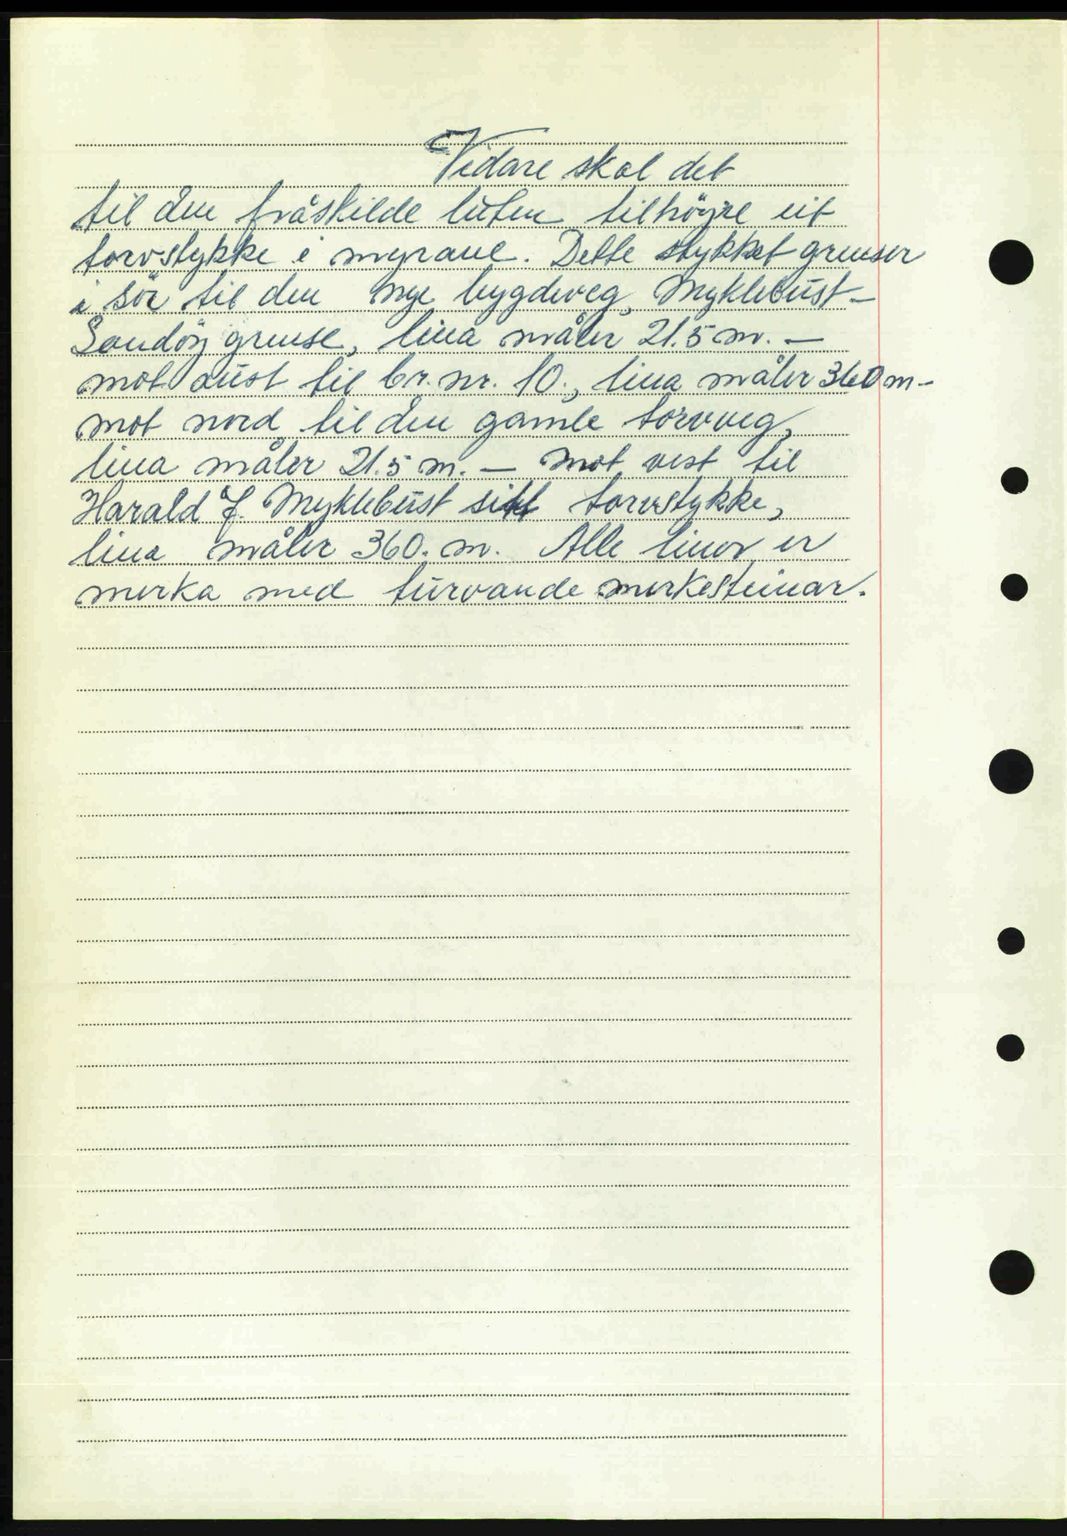 Vidare skal det
til den fråskilde luten tilhöyre eit
torvstykke i myrane. Dette stykket grenser
i sör til den nye bygdeveg, Myklebust-
Sandöy grense, lina måler 21.5 m. —
mot aust til br. nr. 10., lina måler 360 m -
mot nord til den gamle torvveg,
lina måler 21.5 m. — mot vest til
Harald J. Myklebust sitt torvstykke,
lina måler 360. m. Alle linor er
merka med turvande merkesteinar.